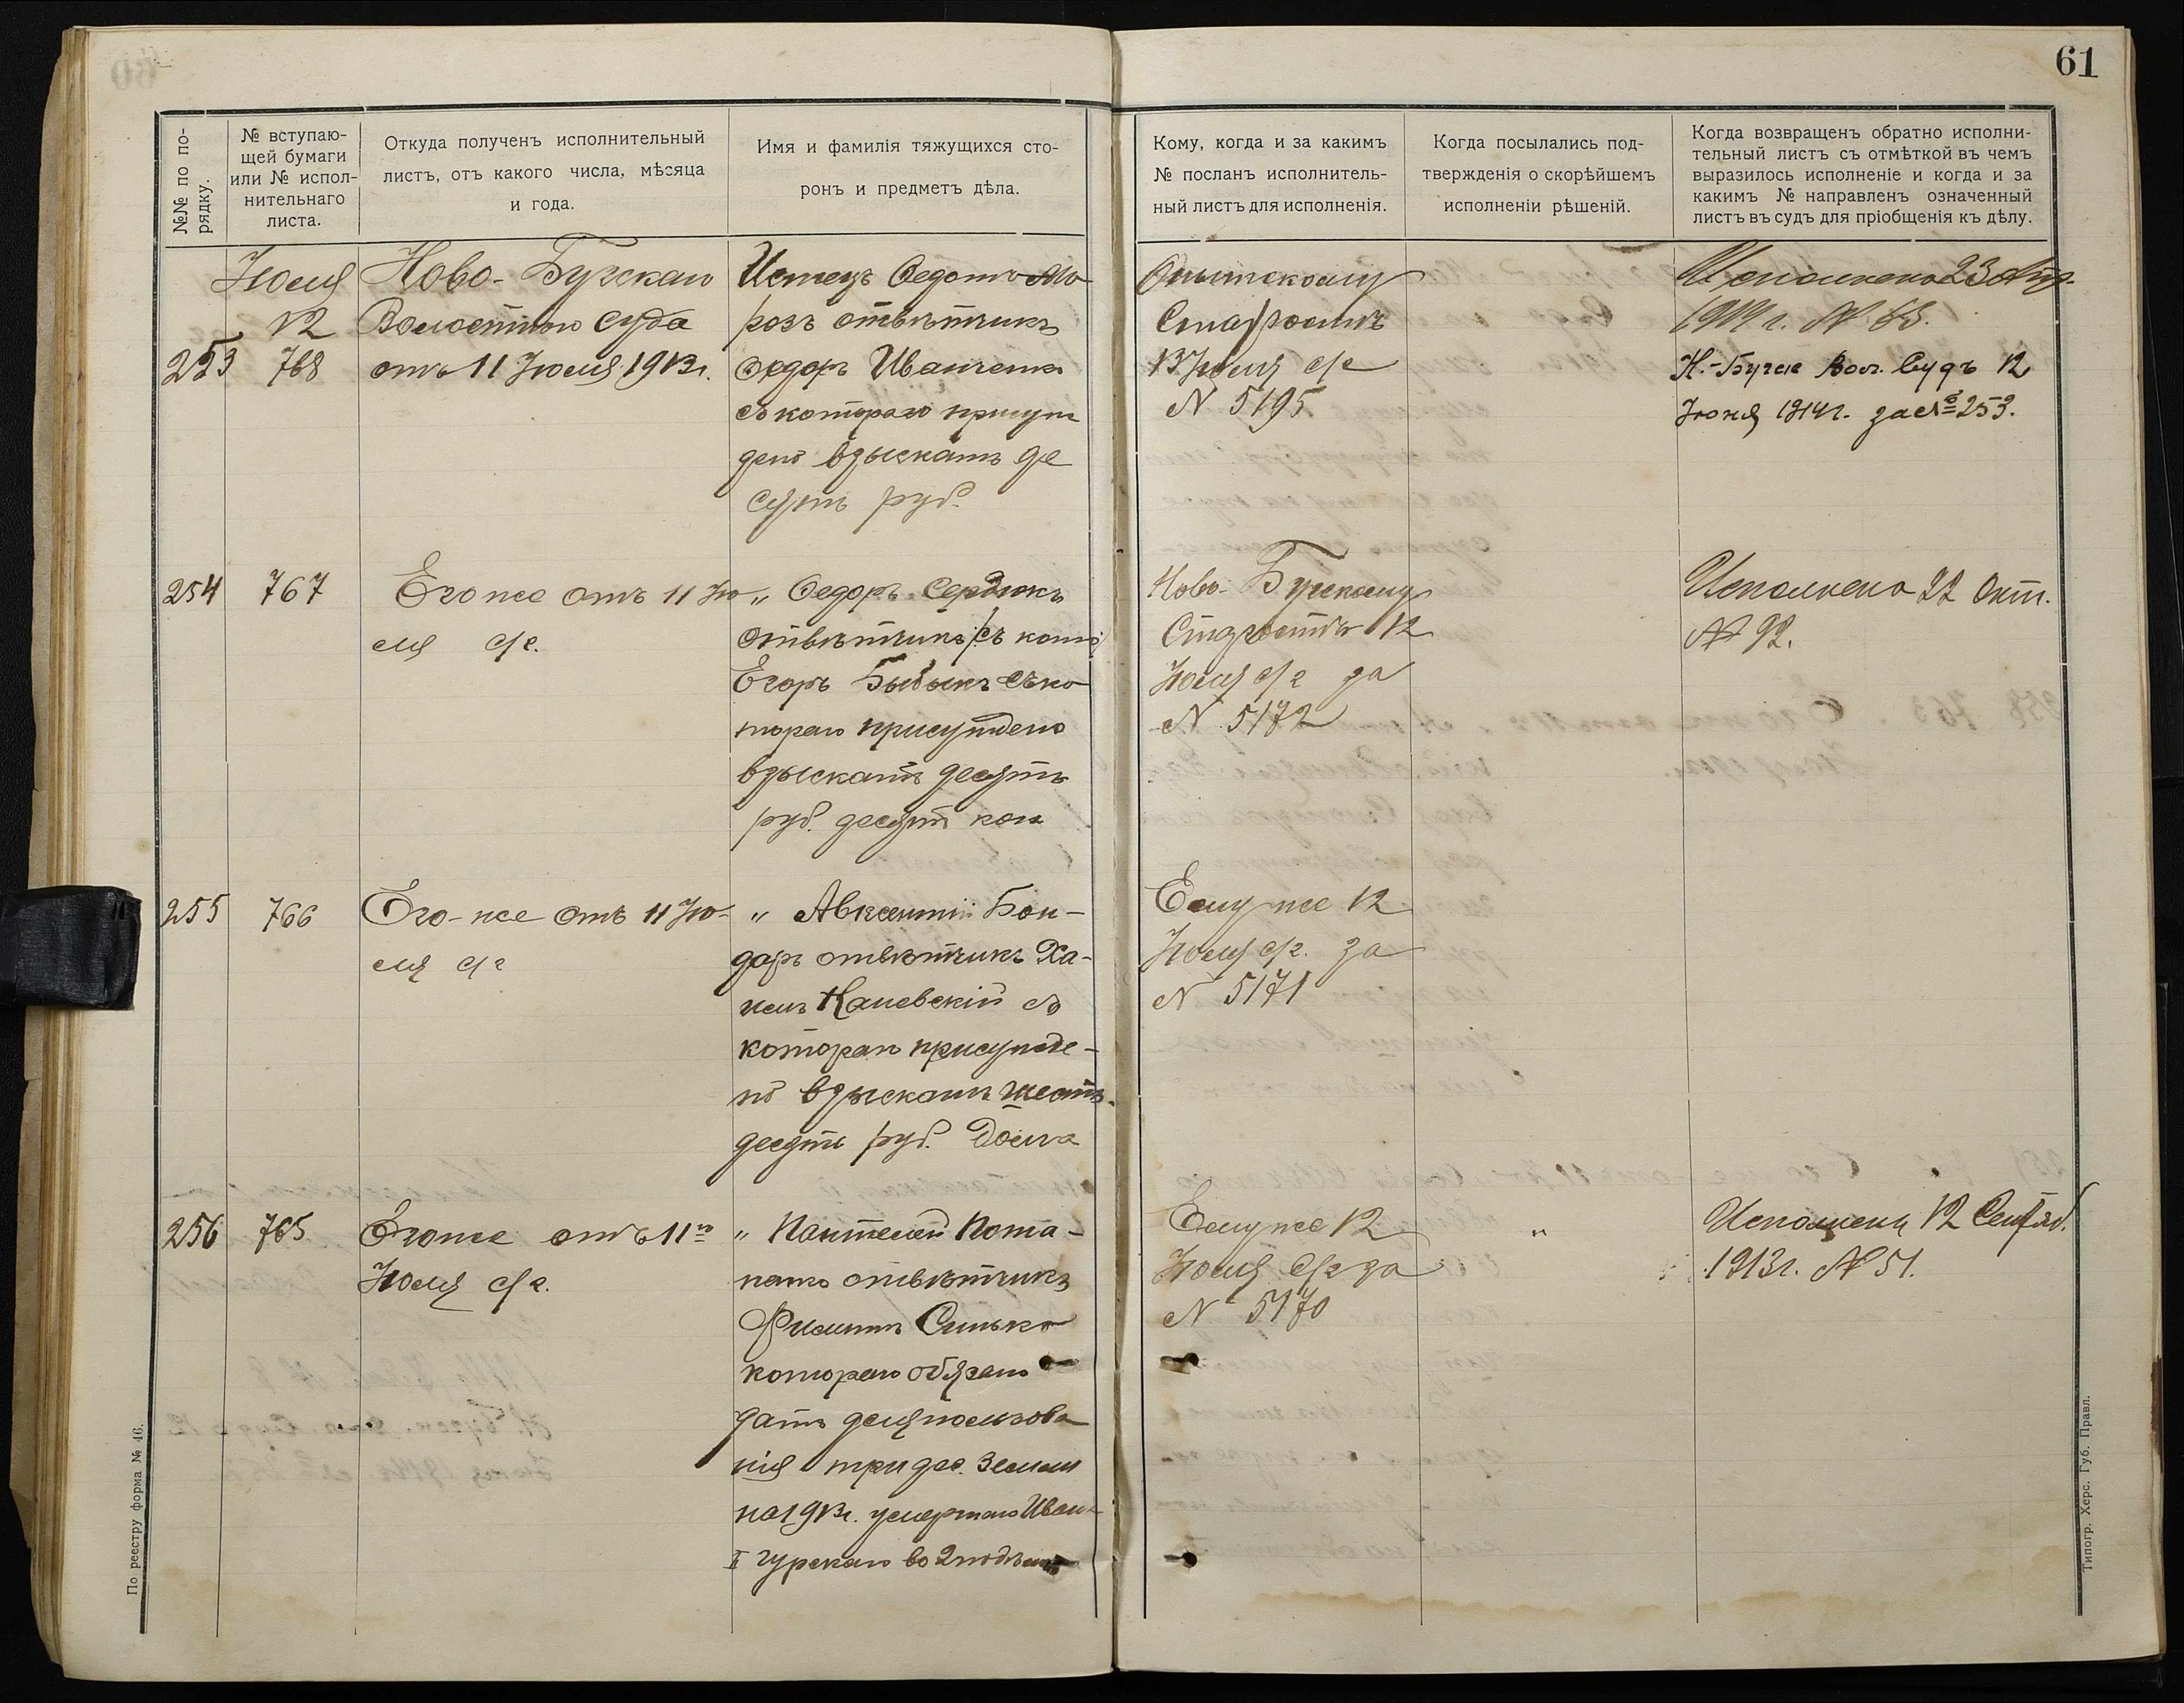 61
№№ по по-
рядку.
№ вступаю-
щей бумаги
или № испол-
нительнаго
листа.
Откуда полученъ исполнительный
листъ, отъ какого числа, мѣсяца
и года.
Имя и фамилія тяжущихся сто-
ронъ и предметъ дѣла.
Кому, когда и за какимъ
№ посланъ исполнитель-
ный листъ для исполненія.
Когда посылались под-
твержденія о скорѣйшемъ
исполненіи рѣшеній.
Когда возвращенъ обратно исполни-
тельный листъ съ отмѣткой въ чемъ
выразилось исполненіе и когда и за
какимъ № направленъ означенный
листъ въ судъ для пріобщенія къ дѣлу.
Июля
12
253
768
Ново-Бугскаго
Волостного Суда
отъ 11 Июля 1913г.
Истецъ Федотъ Мо-
розъ отвѣтчикъ
Федоръ Иванченко
съ котораго присуж
дено взыскать де
сять руб.
Старостѣ
13 Июля с/г
N 5195
Исполнено 23
Н.-Бугск Вол. Судъ 12
Июня 1914г. за № 253.
254
767
Его же отъ 11 Ию
ля с/г.
„ Федоръ Сердюкъ
отвѣтчикъ
Егоръ съ ко
тораго присуждено
взыскать десять
руб. десять коп
Ново-Бугскому
Старостѣ 12
Июля с/г за
N 5172
Исполнено 22 Окт.
№ 92.
255
766
Его-же отъ 11 Ию-
ля с/г
„ Авксентій Бон-
даръ отвѣтчикъ Ха-
Каневскій съ
котораго присужде-
но взыскать шесть-
десятъ руб. долга
Ему же 12
Июля с/г. за
N 5171
256
765
Его же отъ 11го
Июля с/г.
„ Пантелей Пота-
пенко отвѣтчикъ
Филиппъ Синько
котораго обязано
дать для пользова
нія три дес. земли
на 1913г. умершаго Ивана
во 2
Ему же 12
Июля с/г за
N 5170
„
Исполнено 12 Сентяб.
1913г. № 51.
По реестру форма № 46.
Типогр. Херс. Губ. Правл.